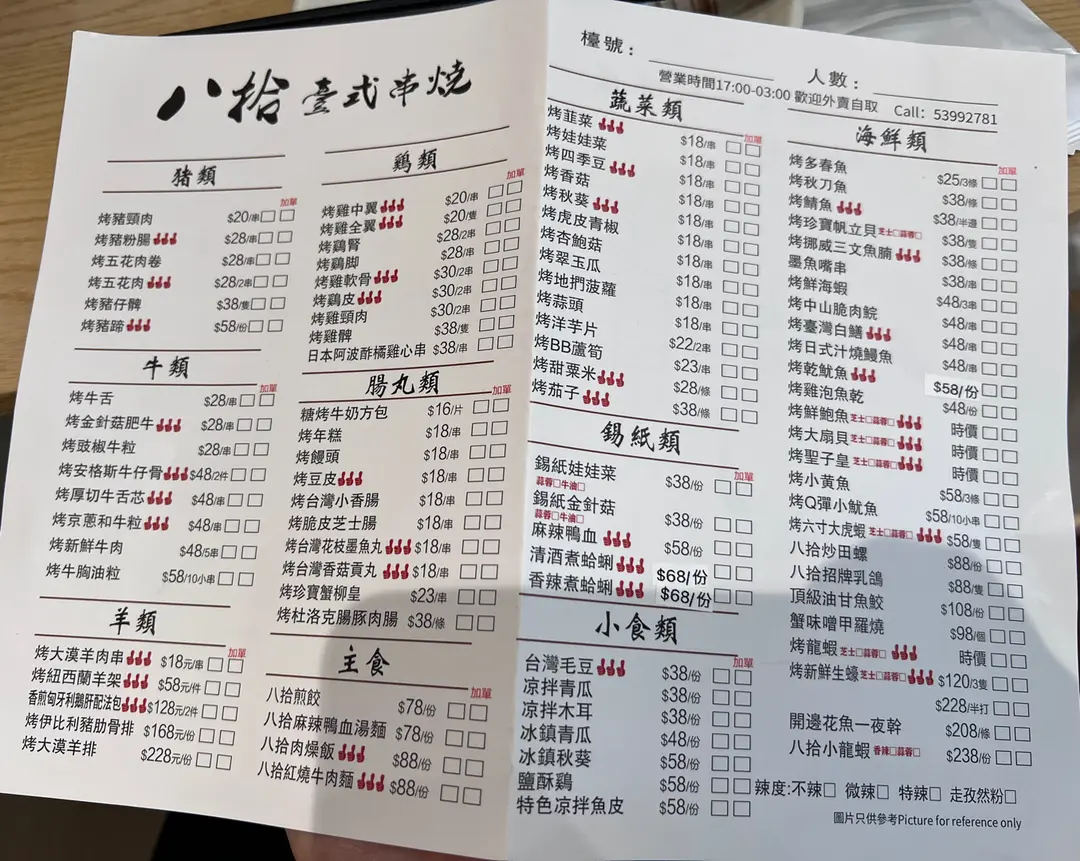 八拾 臺式串燒
豬類
加單
烤豬頸肉 $20/串
烤豬粉腸 $28/串
烤五花肉卷 $28/串
烤五花肉 $28/2串
烤豬仔髀 $38/隻
烤豬蹄 $58/份
牛類
加單
烤牛舌 $28/串
烤金針菇肥牛 $28/串
烤豉椒牛粒 $28/串
烤安格斯牛仔骨 $48/2件
烤厚切牛舌芯 $48/串
烤京蔥和牛粒 $48/串
烤新鮮牛肉 $48/5串
烤牛胸油粒 $58/10小串
羊類
加單
烤大漠羊肉串 $18元/串
烤紐西蘭羊架 $58元/件
香煎匈牙利鵝肝配法包 $128元/2件
烤伊比利豬肋骨排 $168元/份
烤大漠羊排 $228元/份
鷄類
加單
烤雞中翼 $20/串
烤雞全翼 $20/隻
烤鷄腎 $28/2串
烤鷄脚 $28/串
烤雞軟骨 $30/2串
烤鷄皮 $30/2串
烤雞頸肉 $30/2串
烤雞髀 $38/隻
日本阿波酢橘雞心串 $38/串
腸丸類
加單
糖烤牛奶方包 $16/片
烤年糕 $18/串
烤饅頭 $18/串
烤豆皮 $18/串
烤台灣小香腸 $18/串
烤脆皮芝士腸 $18/串
烤台灣花枝墨魚丸 $18/串
烤台灣香菇貢丸 $18/串
烤珍寶蟹柳皇 $23/串
烤杜洛克腸豚肉腸 $38/條
主食
加單
八拾煎餃 $78/份
八拾麻辣鴨血湯麵 $78/份
八拾肉燥飯 $88/份
八拾紅燒牛肉麵 $88/份
檯號：
人數：
營業時間17:00-03:00 歡迎外賣自取 Call：53992781
蔬菜類
加單
烤韮菜 $18/串
烤娃娃菜 $18/串
烤四季豆 $18/串
烤香菇 $18/串
烤秋葵 $18/串
烤虎皮青椒 $18/串
烤杏鮑菇 $18/串
烤翠玉瓜 $18/串
烤地捫菠蘿 $18/串
烤蒜頭 $18/串
烤洋芋片 $22/2串
烤BB蘆筍 $23/串
烤甜粟米 $28/條
烤茄子 $38/條
錫紙類
加單
錫紙娃娃菜 $38/份
蒜蓉□牛油□
錫紙金針菇 $38/份
蒜蓉□牛油□
麻辣鴨血 $58/份
清酒煮蛤蜊 $68/份
香辣煮蛤蜊 $68/份
小食類
加單
台灣毛豆 $38/份
凉拌青瓜 $38/份
凉拌木耳 $38/份
冰鎮青瓜 $48/份
冰鎮秋葵 $58/份
鹽酥鷄 $58/份
特色凉拌魚皮 $58/份
海鮮類
加單
烤多春魚 $25/3條
烤秋刀魚 $38/條
烤鯖魚 $38/半邊
烤珍寶帆立貝 芝士□蒜蓉□ $38/隻
烤挪威三文魚腩 $38/條
墨魚嘴串 $38/串
烤鮮海蝦 $48/3串
烤中山脆肉鯇 $48/串
烤臺灣白鱔 $48/串
烤日式汁燒鰻魚 $48/串
烤乾魷魚 $58/份
烤雞泡魚乾 $48/份
烤鮮鮑魚 芝士□蒜蓉□ 時價
烤大扇貝 芝士□蒜蓉□ 時價
烤聖子皇 芝士□蒜蓉□ 時價
烤小黃魚 $58/3條
烤Q彈小魷魚 $58/10小串
烤六寸大虎蝦 芝士□蒜蓉□ $58/隻
八拾炒田螺 $88/份
八拾招牌乳鴿 $88/隻
頂級油甘魚鮫 $108/份
蟹味噌甲羅燒 $98/個
烤龍蝦 芝士□蒜蓉□ 時價
烤新鮮生蠔 芝士□蒜蓉□ $120/3隻
$228/半打
開邊花魚一夜幹 $208/條
八拾小龍蝦 香辣□蒜蓉□ $238/份
辣度:不辣□ 微辣□ 特辣□ 走孜然粉□
圖片只供參考Picture for reference only